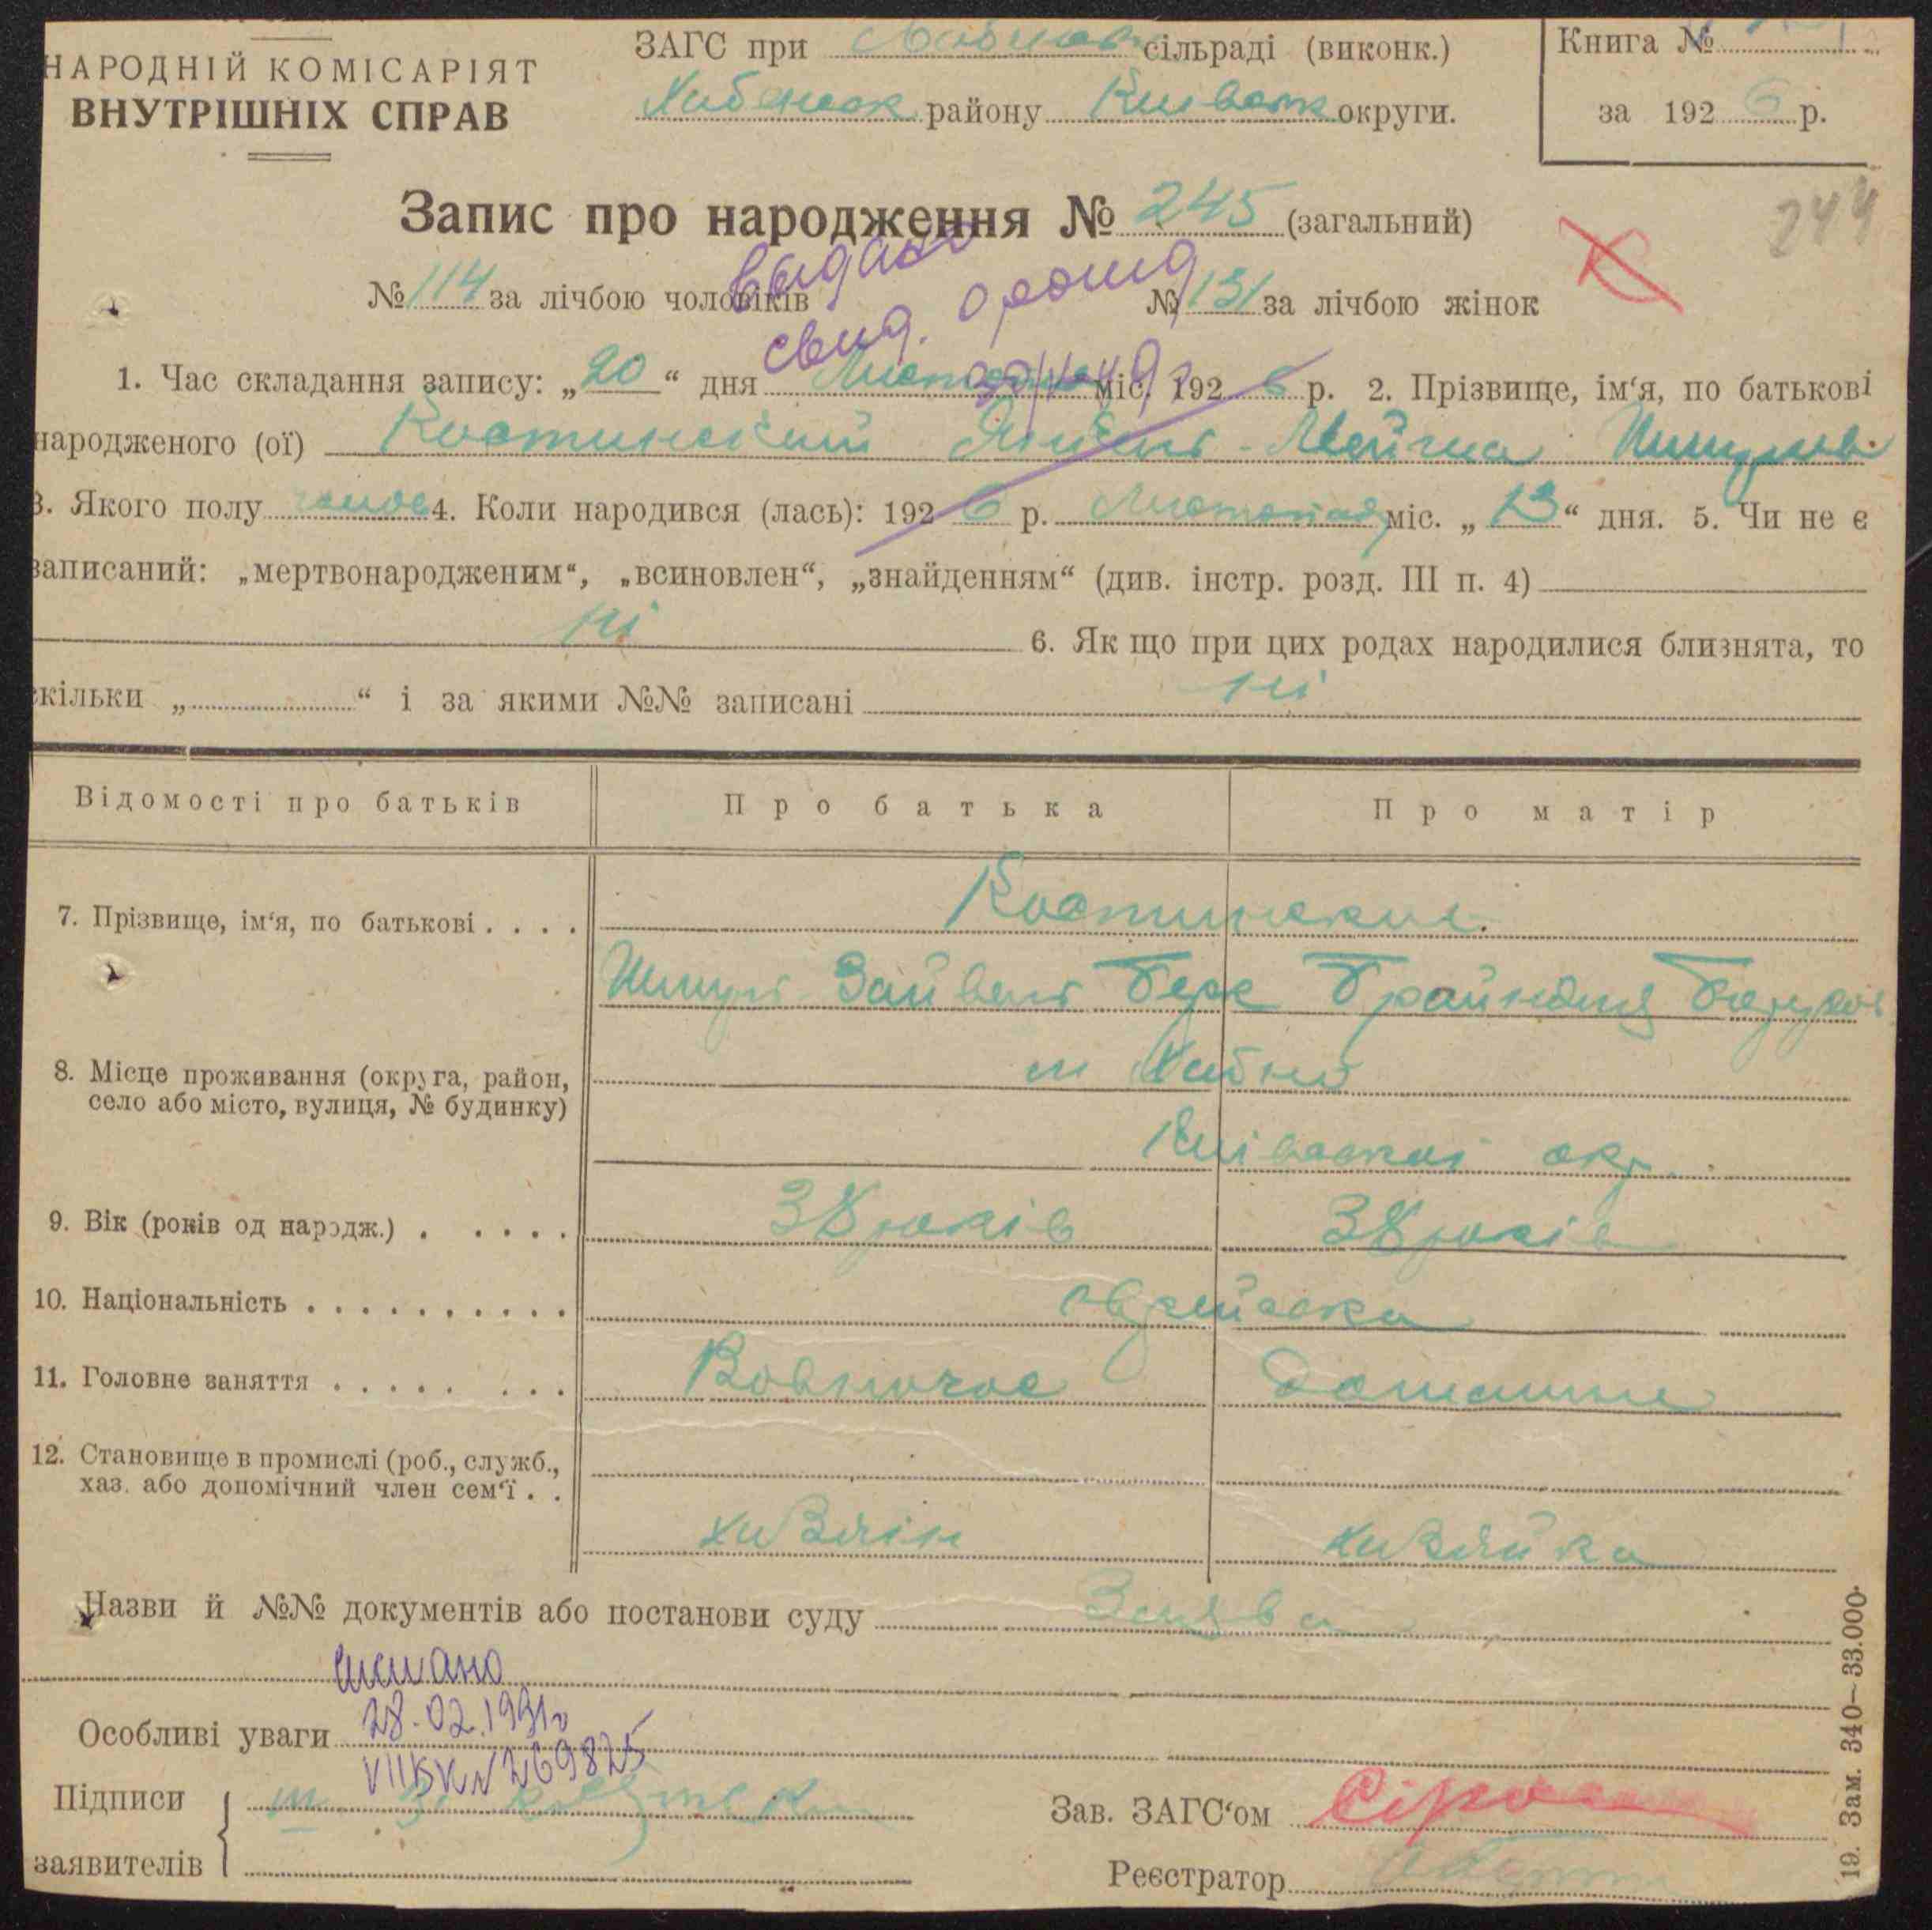 НАРОДНІЙ КОМІСАРІЯТ
ВНУТРІШНІХ СПРАВ
ЗАГС при сільраді (виконк.)
району округи.
Книга №
за 192 6 р.
Запис про народження № 245 (загальний)
244
№ 114 за лічбою чоловіків № 131 за лічбою жінок
видано
свид. о рожд
1. Час складання запису: „20“ дня міс. 192 6 р. 2. Прізвище, ім'я, по батькові
народженого (ої) Костинский
3. Якого полу 4. Коли народився (лась): 192 6 р. Листопад міс. „13“ дня. 5. Чи не є
записаний: „мертвонародженим“, „всиновлен“, „знайденням“ (див. інстр. розд. III п. 4)
ні 6. Як що при цих родах народилися близнята, то
скільки „ “ і за якими №№ записані ні
Відомості про батьків Про батька Про матір
7. Прізвище, ім'я, по батькові . . . . Костинские.
8. Місце проживання (округа, район, м Хабно
село або місто, вулиця, № будинку)
окр.
9. Вік (років од народж.) . . . . . 38 років 38 років
10. Національність . . . . . . . . . . . єврейська
11. Головне заняття . . . . . . . . Домашнє
12. Становище в промислі (роб., служб.,
хаз. або допомічний член сем'ї . .
хазяїн хазяйка
Назви й №№ документів або постанови суду Заява
28.02.1991г
Особливі уваги
№ 269825
Підписи
заявителів
Зав. ЗАГС'ом
Реєстратор
19. Зам. 340—33.000.